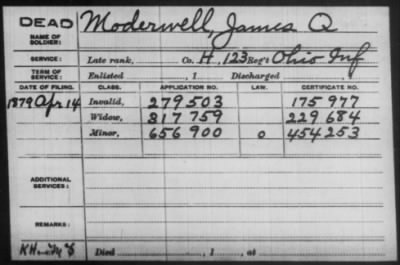 DEAD
NAME OF SOLDIER:
Moderwell, James Q
SERVICE: Late rank, Co. H, 123 Reg't Ohio Inf
TERM OF SERVICE: Enlisted , 1 Discharged , 1
DATE OF FILING. CLASS. APPLICATION NO. LAW. CERTIFICATE NO.
1879 Apr 14 Invalid, 279 503 175 977
Widow, 317 759 229 684
Minor, 656 900 0 454 253
ADDITIONAL SERVICES:
REMARKS:
Died , 1 , at